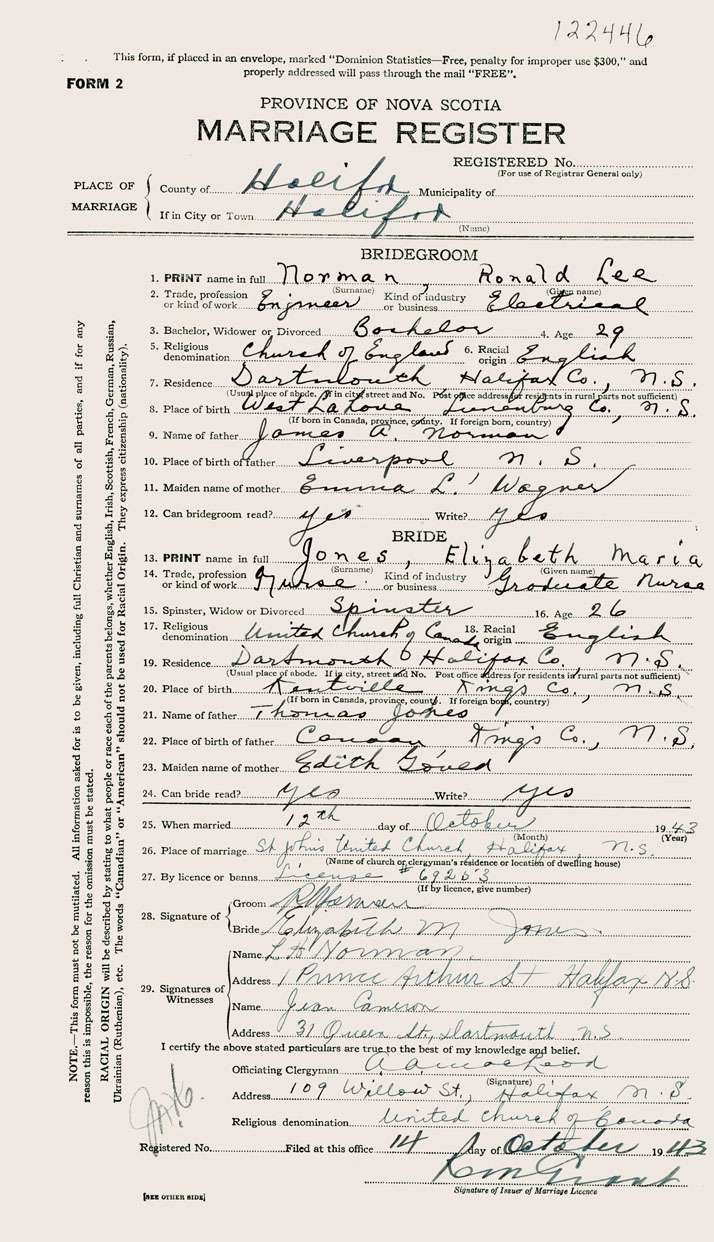 122446
This form, if placed in an envelope, marked "Dominion Statistics—Free, penalty for improper use $300," and
properly addressed will pass through the mail "FREE".
FORM 2
PROVINCE OF NOVA SCOTIA
MARRIAGE REGISTER
REGISTERED No.
(For use of Registrar General only)
PLACE OF MARRIAGE
County of Halifax Municipality of
If in City or Town Halifax
(Name)
BRIDEGROOM
1. PRINT name in full Norman, Ronald Lee
(Surname) (Given name)
2. Trade, profession or kind of work Engineer Kind of industry or business Electrical
3. Bachelor, Widower or Divorced Bachelor 4. Age 29
5. Religious denomination Church of England 6. Racial origin English
7. Residence Dartmouth Halifax Co., N.S.
(Usual place of abode. If in city, street and No. Post office address for residents in rural parts not sufficient)
8. Place of birth West LaHave Lunenburg Co., N.S.
(If born in Canada, province, county. If foreign born, country)
9. Name of father James A. Norman
10. Place of birth of father Liverpool N.S.
11. Maiden name of mother Emma L. Wagner
12. Can bridegroom read? yes Write? yes
BRIDE
13. PRINT name in full Jones, Elizabeth Maria
(Surname) (Given name)
14. Trade, profession or kind of work Nurse Kind of industry or business Graduate Nurse
15. Spinster, Widow or Divorced Spinster 16. Age 26
17. Religious denomination United Church of Canada 18. Racial origin English
19. Residence Dartmouth Halifax Co., N.S.
(Usual place of abode. If in city, street and No. Post office address for residents in rural parts not sufficient)
20. Place of birth Kentville Kings Co., N.S.
(If born in Canada, province, county. If foreign born, country)
21. Name of father Thomas Jones
22. Place of birth of father Canaan Kings Co., N.S.
23. Maiden name of mother Edith Gould
24. Can bride read? yes Write? yes
25. When married 12th day of October 1943
(Month) (Year)
26. Place of marriage St Johns United Church, Halifax, N.S.
(Name of church or clergyman's residence or location of dwelling house)
27. By licence or banns License # 69253
(If by licence, give number)
28. Signature of
Groom R L Norman
Bride Elizabeth M Jones
29. Signatures of Witnesses
Name L H Norman
Address 1 Prince Arthur St Halifax N.S.
Name Jean Cameron
Address 31 Queen St., Dartmouth, N.S.
I certify the above stated particulars are true to the best of my knowledge and belief.
Officiating Clergyman
(Signature)
Address 109 Willow St., Halifax N.S.
Religious denomination United Church of Canada
Registered No. Filed at this office 14 day of October 1943
Signature of Issuer of Marriage Licence
[SEE OTHER SIDE]
NOTE.—This form must not be mutilated. All information asked for is to be given, including full Christian and surnames of all parties, and if for any
reason this is impossible, the reason for the omission must be stated.
RACIAL ORIGIN will be described by stating to what people or race each of the parents belongs, whether English, Irish, Scottish, French, German, Russian,
Ukrainian (Ruthenian), etc. The words "Canadian" or "American" should not be used for Racial Origin. They express citizenship (nationality).